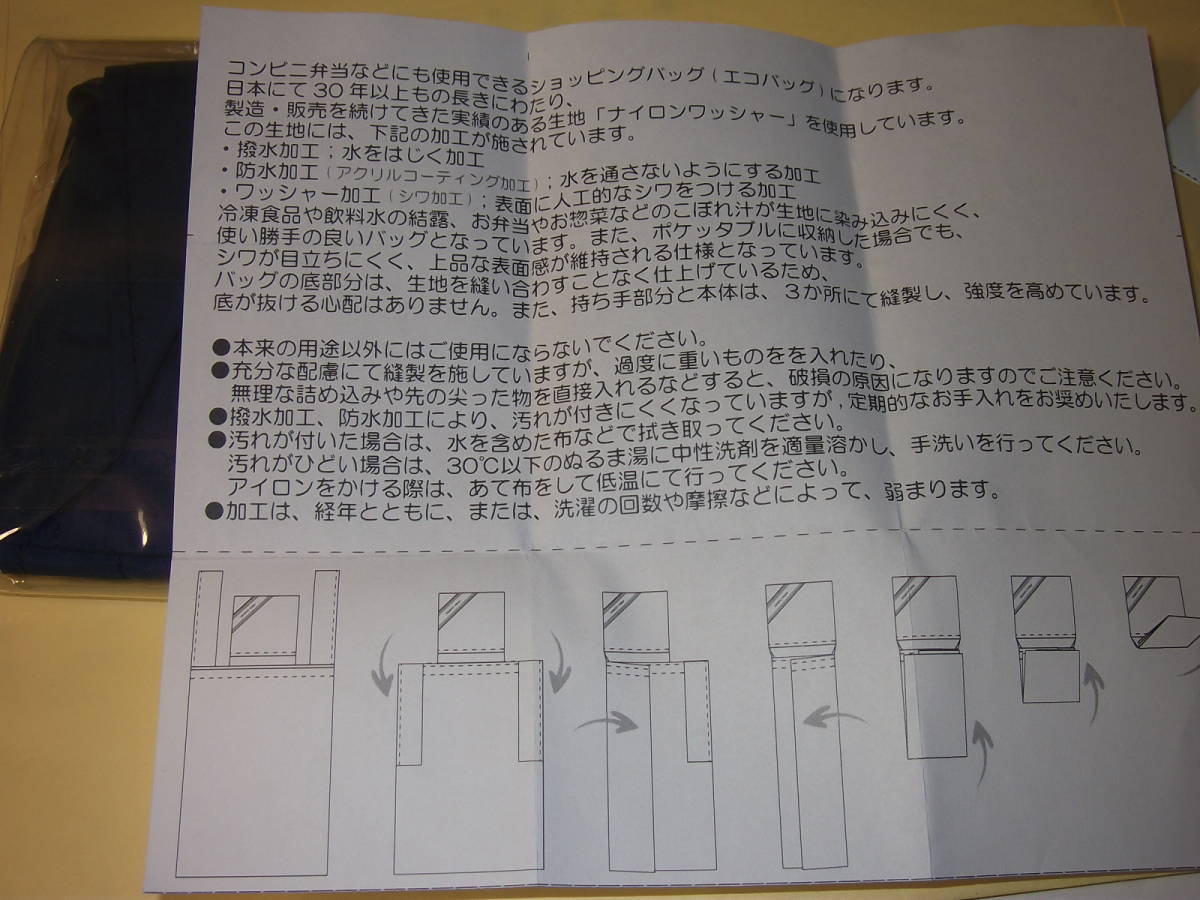 コンビニ弁当などにも使用できるショッピングバッグ(エコバッグ)になります。
日本にて30年以上もの長きにわたり、
製造・販売を続けてきた実績のある生地「ナイロンワッシャー」を使用しています。
この生地には、下記の加工が施されています。
・撥水加工;水をはじく加工
・防水加工(アクリルコーティング加工);水を通さないようにする加工
・ワッシャー加工(シワ加工);表面に人工的なシワをつける加工
冷凍食品や飲料水の結露、お弁当やお惣菜などのこぼれ汁が生地に染み込みにくく、
使い勝手の良いバッグとなっています。また、ポケッタブルに収納した場合でも、
シワが目立ちにくく、上品な表面感が維持される仕様となっています。
バッグの底部分は、生地を縫い合わすことなく仕上げているため、
底が抜ける心配はありません。また、持ち手部分と本体は、3か所にて縫製し、強度を高めています。
●本来の用途以外にはご使用にならないでください。
●充分な配慮にて縫製を施していますが、過度に重いものをを入れたり、
無理な詰め込みや先の尖った物を直接入れるなどすると、破損の原因になりますのでご注意ください。
●撥水加工、防水加工により、汚れが付きにくくなっていますが,定期的なお手入れをお奨めいたします。
●汚れが付いた場合は、水を含めた布などで拭き取ってください。
汚れがひどい場合は、30℃以下のぬるま湯に中性洗剤を適量溶かし、手洗いを行ってください。
アイロンをかける際は、あて布をして低温にて行ってください。
●加工は、経年とともに、または、洗濯の回数や摩擦などによって、弱まります。